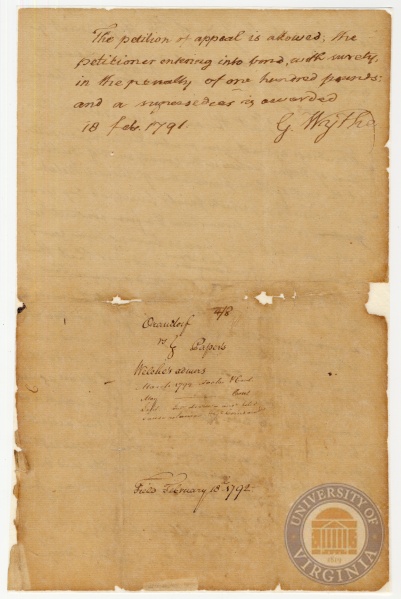 The petition of appeal is allowed, the
petitioner entering into bond, with surety,
in the penalty of one hundred pounds:
and a supersedeas is awarded
18 feb. 1791. G. Wythe
Orendorf
vs Papers
Welche's admors
March 1792
May
Sept
Filed February 18th 1792
UNIVERSITY OF VIRGINIA
1819